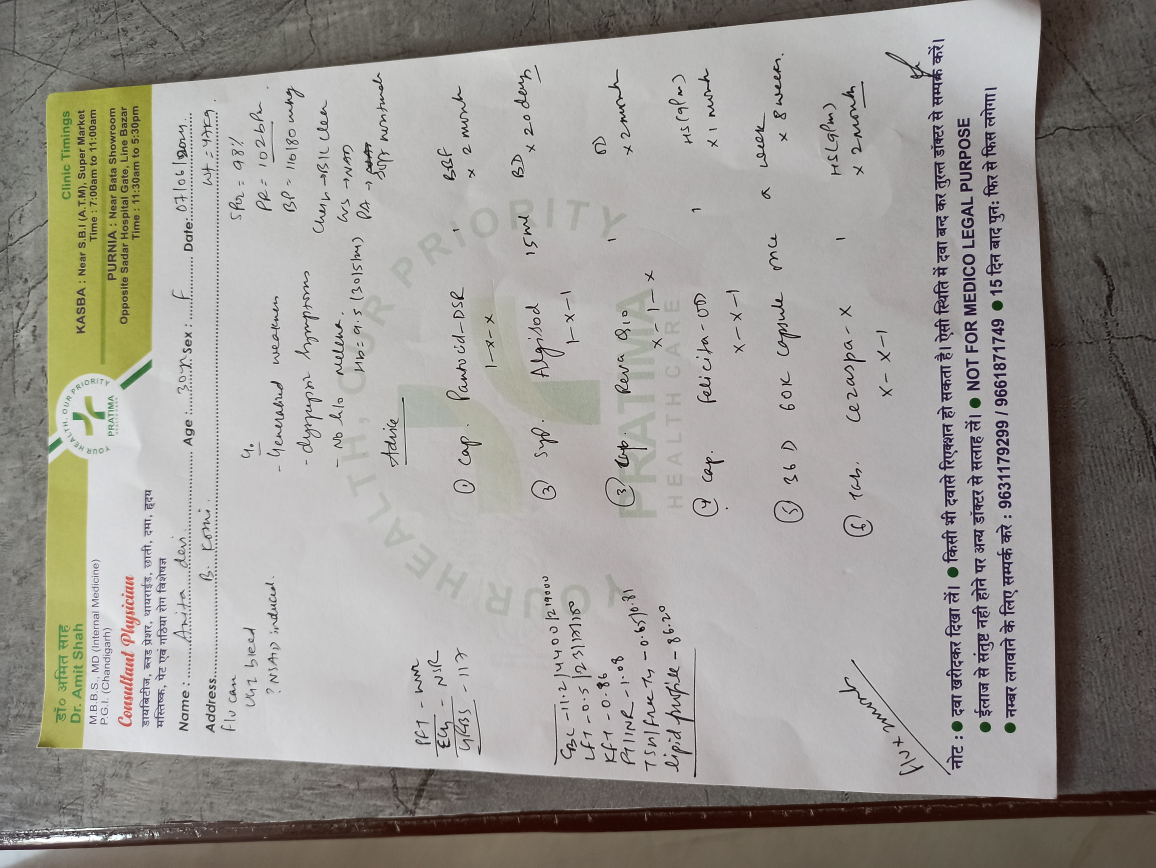 डॉ० अमित साह
Dr. Amit Shah
M.B.B.S., MD (Internal Medicine)
P.G.I. (Chandigarh)
Consultant Physician
डायबिटीज, ब्लड प्रेशर, थायराईड, छाती, दमा, हृदय
मस्तिष्क, पेट एवं गठिया रोग विशेषज्ञ
YOUR HEALTH, OUR PRIORITY
PRATIMA
Clinic Timings
KASBA : Near S.B.I (A.T.M), Super Market
Time : 7:00am to 11:00am
PURNIA : Near Bata Showroom
Opposite Sadar Hospital Gate, Line Bazar
Time : 11:30am to 5:30pm
Name : Anita devi Age : 30y Sex : F Date: 07/06/
Address B. Kothi Wt = 47kg.
f/u can
UGI bleed
? NSAID induced.
PFT - WNR
ECG - NSR
GRBS - 117
CBC - 11.2/4400/219000
LFT - 0.5/23/
KFT - 0.86
PT/INR - 1.08
TSH/Free T4 - 0.65/0.81
lipid profile - 86.20
c/o
- Generalised weakness
- dyspeptic symptoms
- No h/o melena.
Hb = 9.5 (30/5/)
SPO2 = 98%
PR = 102 bpm
BP = 110/80 mmhg
Chest → B/L clear
CVS → NAD
PA →
Advice
① Cap. Pantocid-DSR 1 BBF
1-x-x x 2 month
② Syp. Algisod 15ml BD
1-x-1 x 20 days
③ Cap. Reva 1 OD
x-1-x x 2 month
④ Cap. Felicita-OD 1 HS (9pm)
x-x-1 x 1 month
⑤ D 60K capsule once a week
x 8 weeks.
⑥ Tab. Cezaspa-X 1 HS (9pm)
x-x-1 x 2 month
YOUR HEALTH, OUR PRIORITY
PRATIMA
HEALTHCARE
नोट : ● दवा खरीदकर दिखा लें। ● किसी भी दवासे रिएक्शन हो सकता है। ऐसी स्थिति में दवा बन्द कर तुरन्त डॉक्टर से सम्पर्क करें।
● ईलाज से संतुष्ट नही होने पर अन्य डॉक्टर से सलाह लें। ● NOT FOR MEDICO LEGAL PURPOSE
● नम्बर लगवाने के लिए सम्पर्क करे : 9631179299 / 9661871749 ● 15 दिन बाद पुनः फिर से फिस लगेगा।